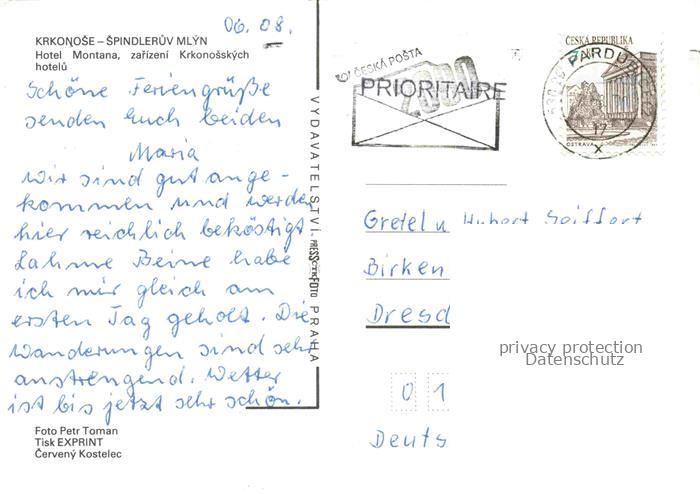 06. 08.
KRKONOŠE – ŠPINDLERŮV MLÝN
Hotel Montana, zařízení Krkonošských
hotelů
Schöne Feriengrüße
senden Euch beiden
Maria
Wir sind gut ange-
kommen und werden
hier reichlich beköstigt.
Lahme Beine habe
ich mir gleich am
ersten Tag geholt. Die
Wanderungen sind sehr
anstrengend. Wetter
ist bis jetzt sehr schön.
Foto Petr Toman
Tisk EXPRINT
Červený Kostelec
VYDAVATELSTVÍ PRESSFOTO PRAHA
ČESKÁ POŠTA
2000
PRIORITAIRE
ČESKÁ REPUBLIKA
PARDUBICE
17
X
OSTRAVA
Gretel u. Hubert Seiffert
Birken
Dresd
privacy protection
Datenschutz
01
Deuts